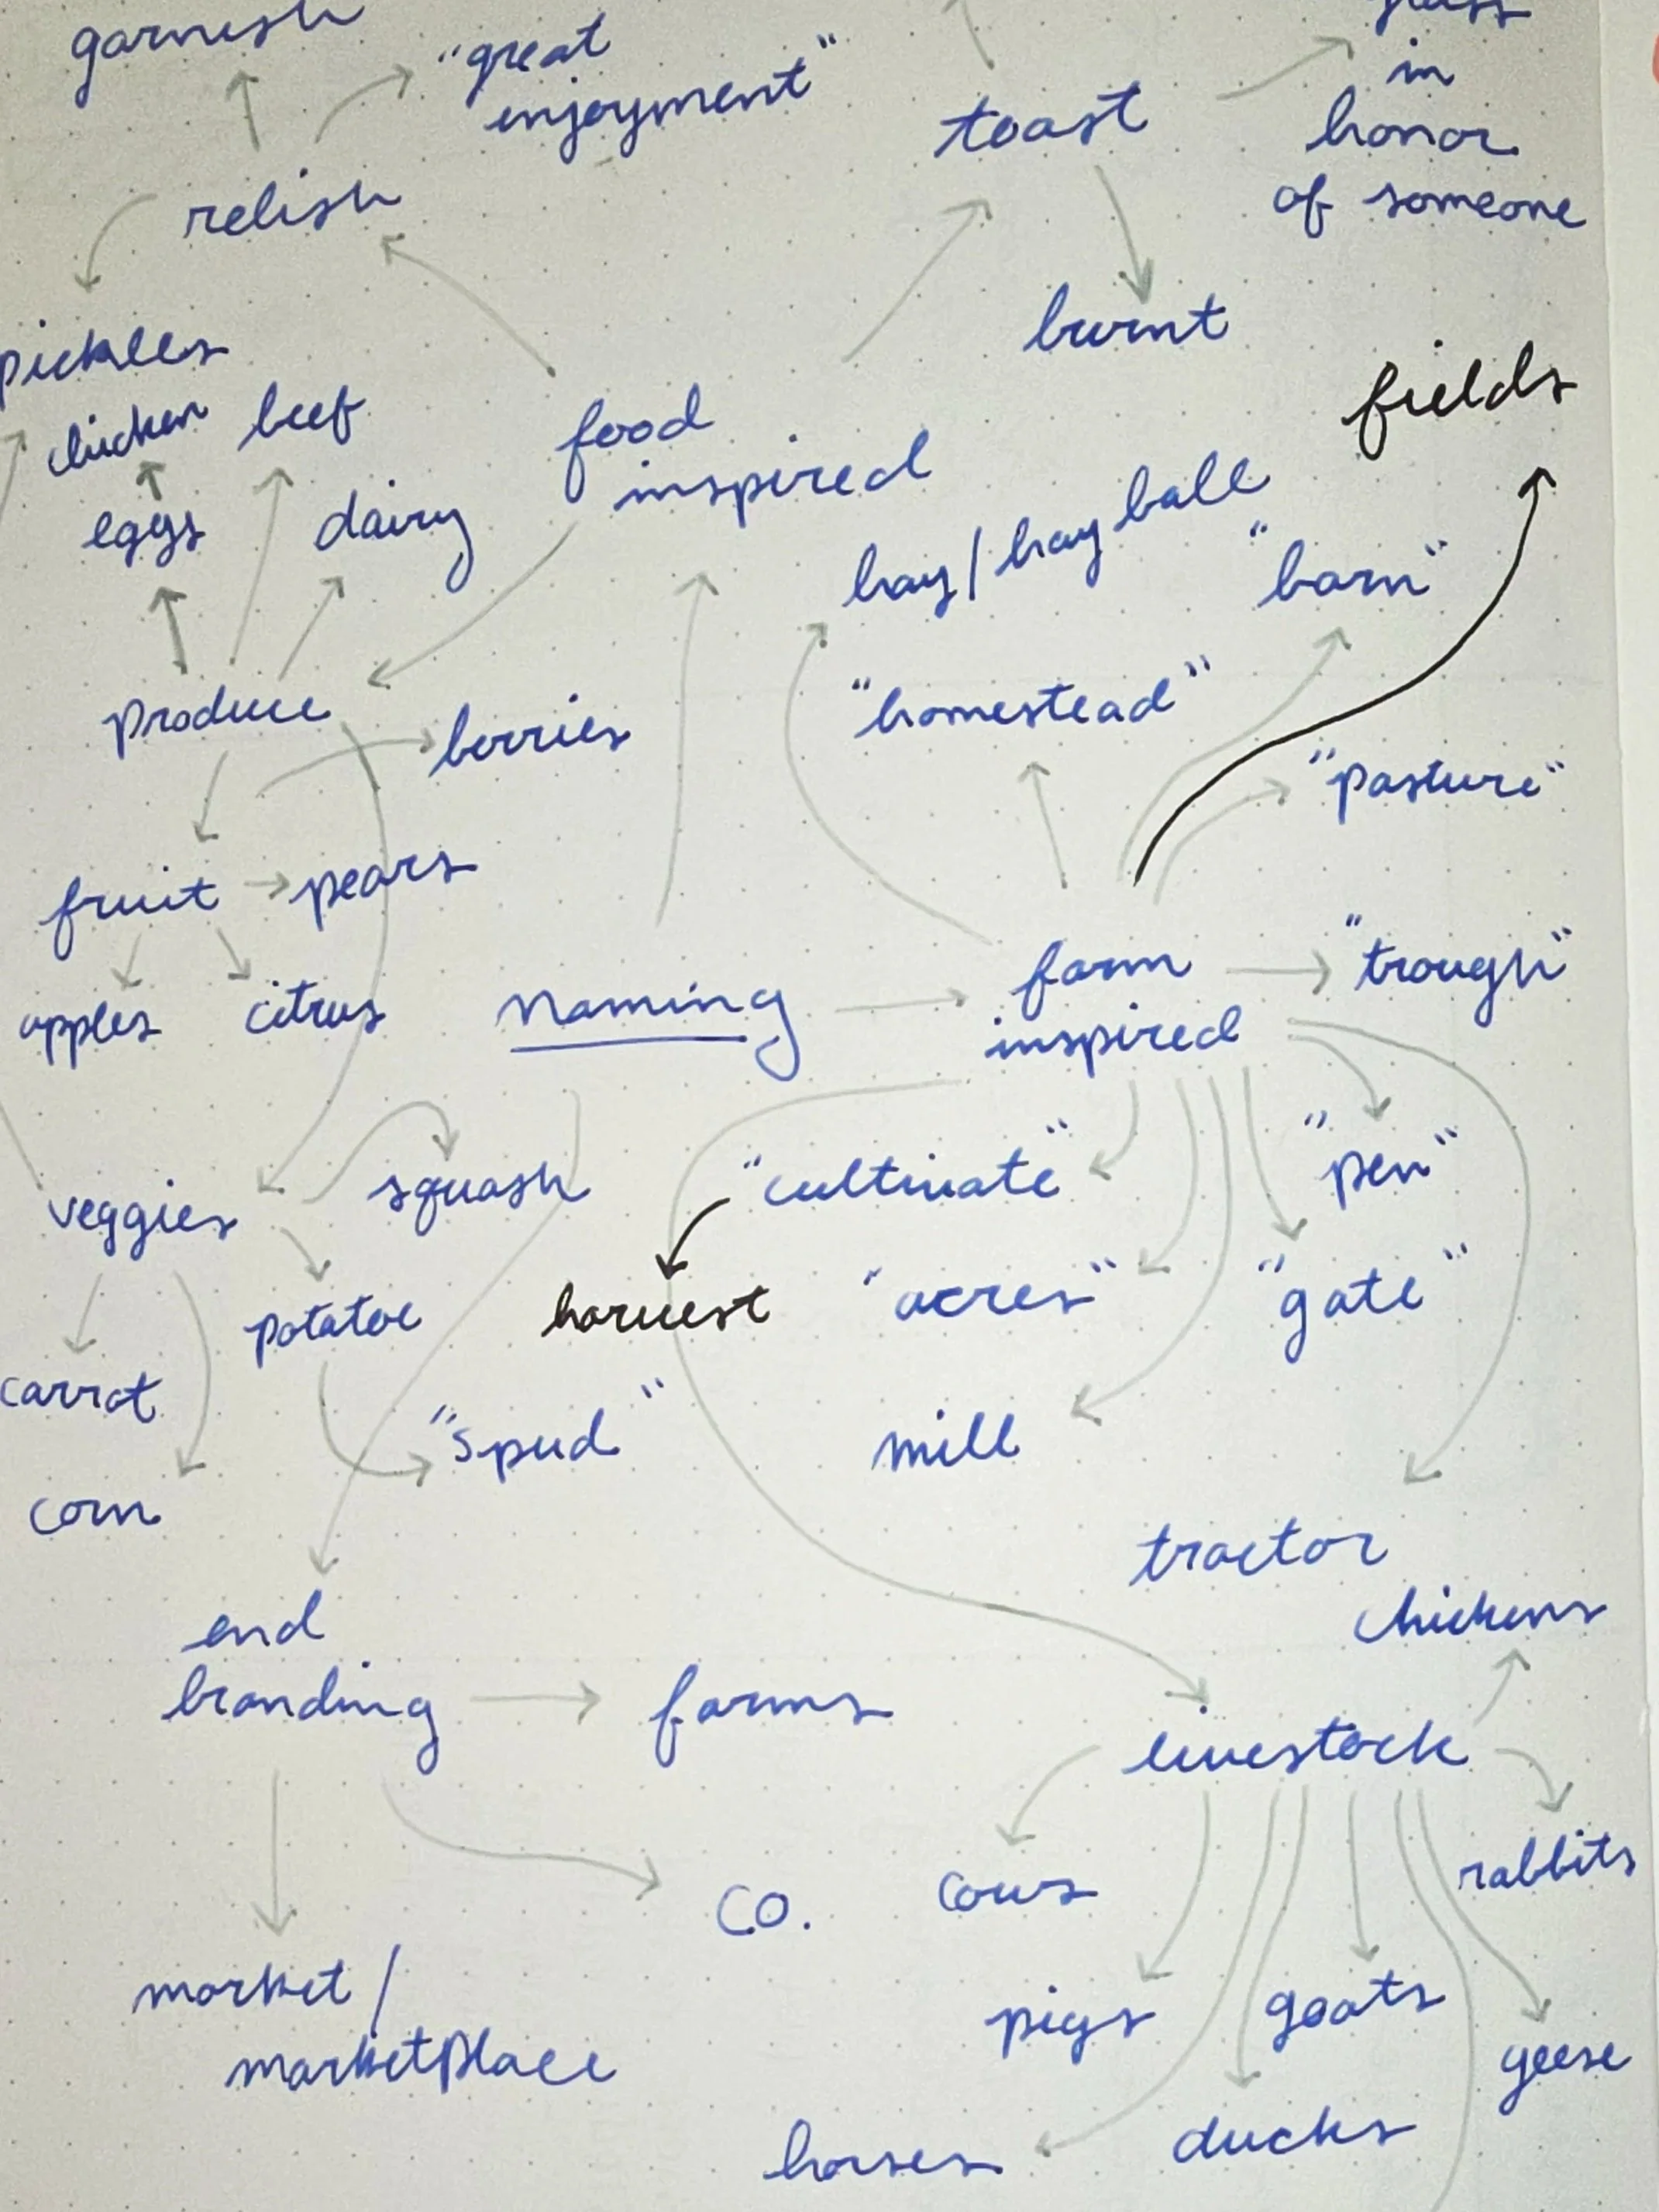 garnish
"great
enjoyment"
toast
glass
in
honor
of someone
relish
burnt
pickles
fields
chicken
beef
food
inspired
eggs
dairy
hay/hay ball
"barn"
produce
berries
"homestead"
"pasture"
fruit
pears
farm
inspired
"trough"
apples
citrus
naming
veggies
squash
"cultivate"
"pen"
potatoe
harvest
"acres"
"gate"
carrot
"spud"
mill
corn
tractor
chickens
end
branding
farms
livestock
co.
cows
rabbits
market/
marketplace
pigs
goats
geese
horses
ducks